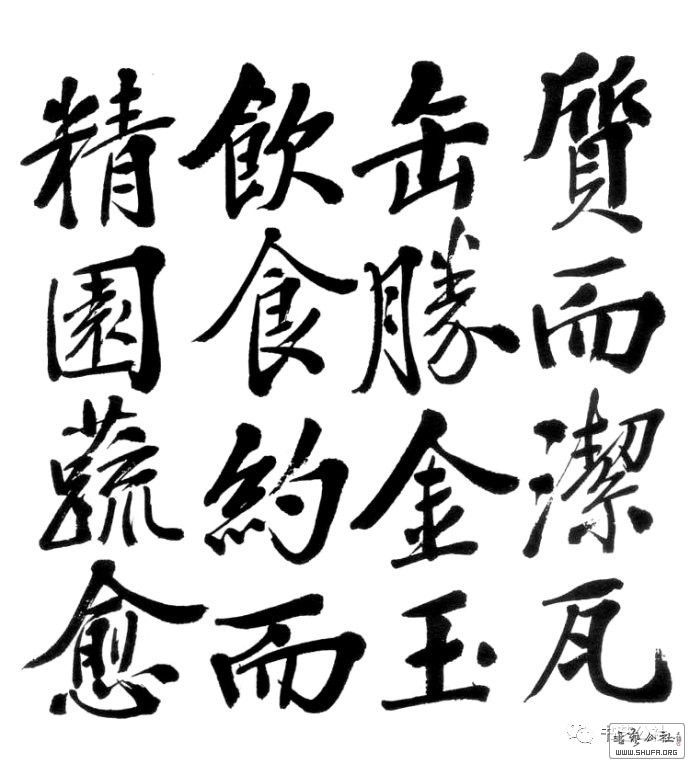 質而潔瓦
缶勝金玉
飲食約而
精園蔬愈
書藝公社
WWW.SHUFA.ORG